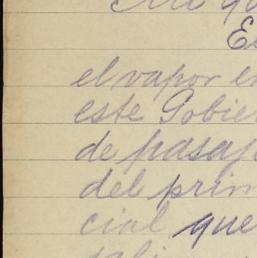 Mi qu
E
el vapor e
este Gobie
de pasaj
del prim
cial que